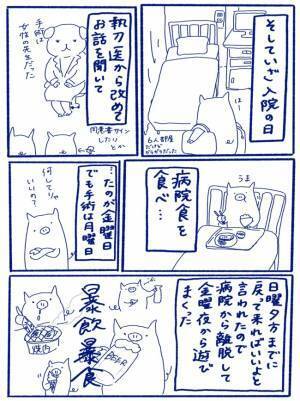 そしていざ入院の日
はー
6人部屋
だけど
がらがらだった
執刀医から改めて
お話を聞いて
手術は
女性の先生だった
同意書サイン
したり
とか
うま
病院食を
食べ…
…たのが金曜日
でも手術は月曜日
何してりゃ
いいの?
日曜夕方までに
戻って来ればいいよと
言われたので
病院から離脱して
金曜夜から遊び
まくった
暴飲
暴食
焼肉
BEER